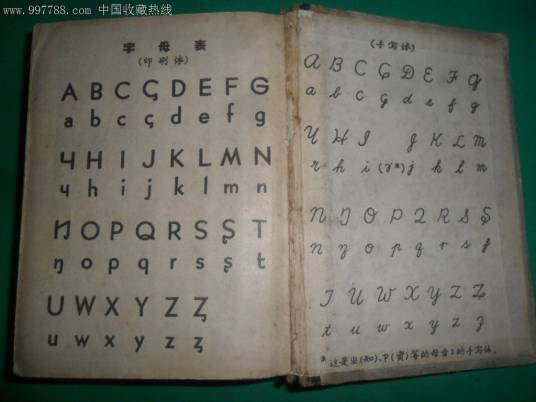 www.997788.com 中国收藏热线
字母表
(印刷体)
A B C Ç D E F G
a b c ç d e f g
Ч H I J K L M N
ч h i j k l m n
Ŋ O P Q R S Ş T
ŋ o p q r s ş t
U W X Y Z Ȥ
u w x y z ȥ
(手写体)
A B C Ç D E F G
a b c ç d e f g
Ч H I J K L M
ч h i j k l m
N Ŋ O P Q R S Ş
n ŋ o p q r s ş
T U W X Y Z Ȥ
t u w x y z ȥ